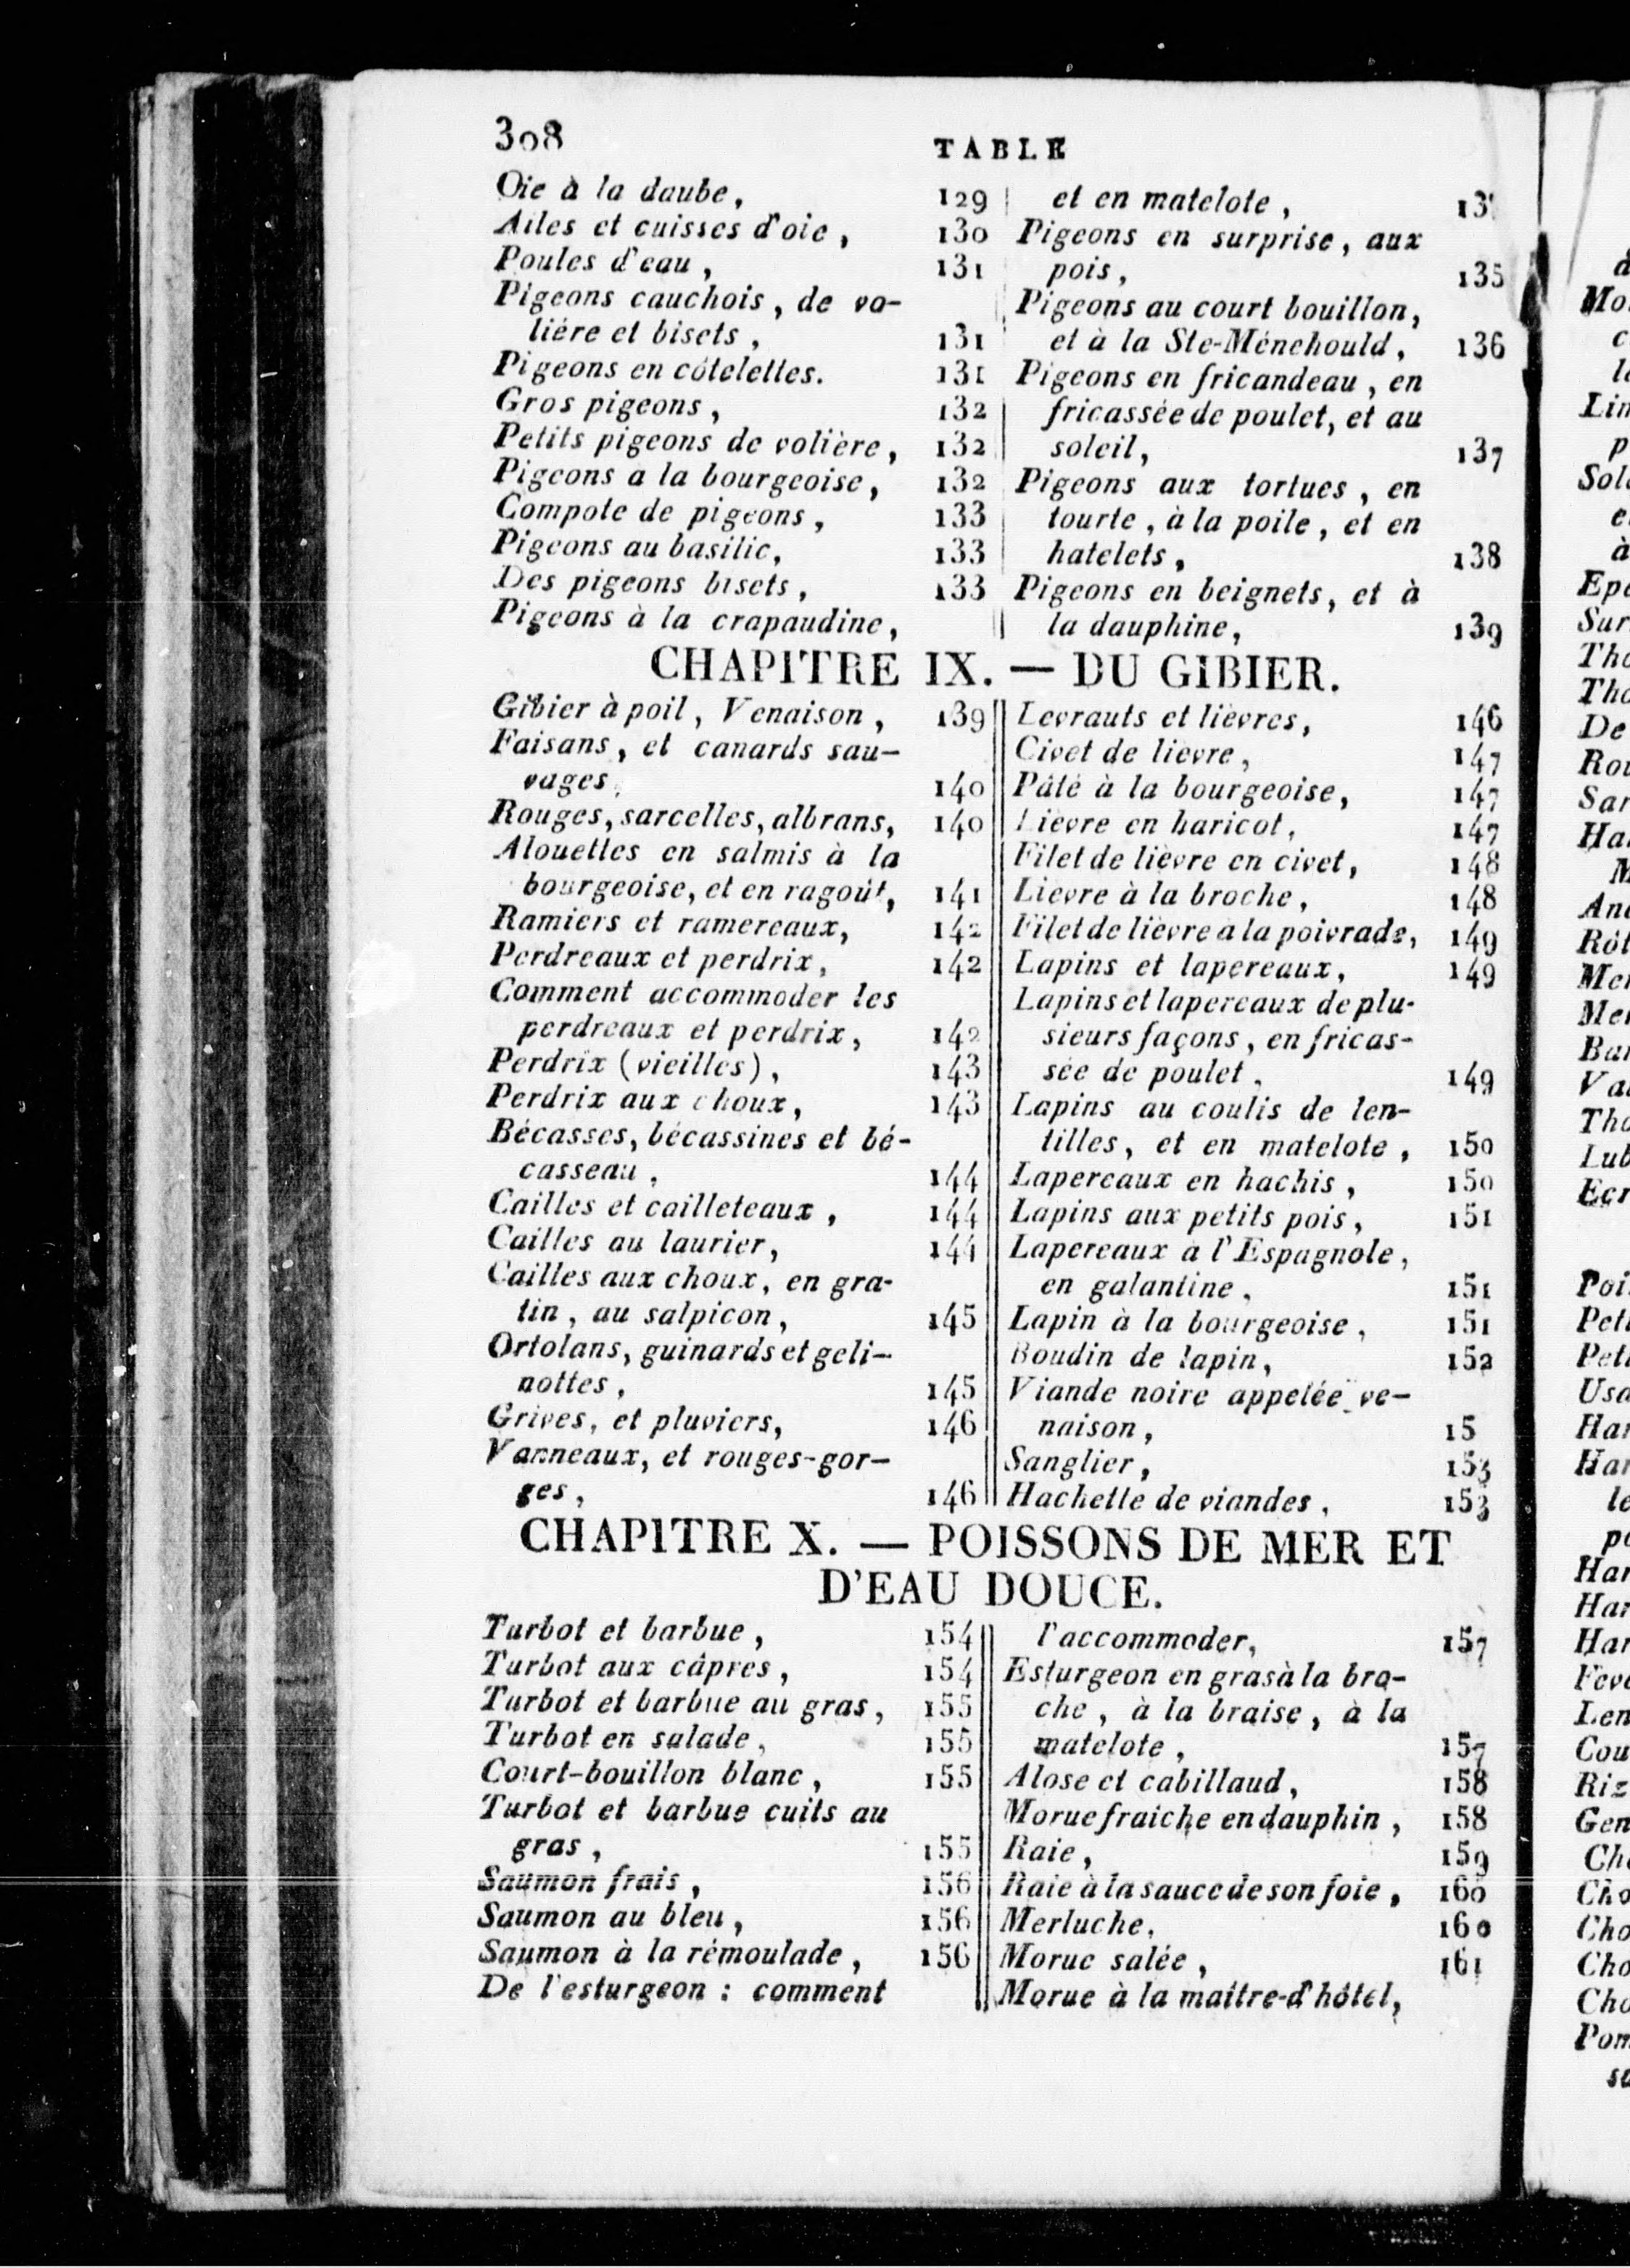 308
TABLE
Oie à la daube, 129
Ailes et cuisses d'oie, 130
Poules d'eau, 131
Pigeons cauchois, de vo-
lière et bisets, 131
Pigeons en côtelettes. 131
Gros pigeons, 132
Petits pigeons de volière, 132
Pigeons a la bourgeoise, 132
Compote de pigeons, 133
Pigeons au basilic, 133
Des pigeons bisets, 133
Pigeons à la crapaudine,
et en matelote,
Pigeons en surprise, aux
pois, 135
Pigeons au court bouillon,
et à la Ste-Ménehould, 136
Pigeons en fricandeau, en
fricassée de poulet, et au
soleil, 137
Pigeons aux tortues, en
tourte, à la poile, et en
hatelets, 138
Pigeons en beignets, et à
la dauphine, 139
CHAPITRE IX. — DU GIBIER.
Gibier à poil, Venaison, 139
Faisans, et canards sau-
vages, 140
Rouges, sarcelles, albrans, 140
Alouettes en salmis à la
bourgeoise, et en ragoût, 141
Ramiers et ramereaux, 142
Perdreaux et perdrix, 142
Comment accommoder les
perdreaux et perdrix, 142
Perdrix (vieilles), 143
Perdrix aux choux, 143
Bécasses, bécassines et bé-
casseau, 144
Cailles et cailleteaux, 144
Cailles au laurier, 144
Cailles aux choux, en gra-
tin, au salpicon, 145
Ortolans, guinards et geli-
nottes, 145
Grives, et pluviers, 146
Vanneaux, et rouges-gor-
ges, 146
Levrauts et lièvres, 146
Civet de lievre, 147
Pâté à la bourgeoise, 147
Lievre en haricot, 147
Filet de lièvre en civet, 148
Lievre à la broche, 148
Filet de lièvre a la poivrade, 149
Lapins et lapereaux, 149
Lapins et lapereaux de plu-
sieurs façons, en fricas-
sée de poulet, 149
Lapins au coulis de len-
tilles, et en matelote, 150
Lapereaux en hachis, 150
Lapins aux petits pois, 151
Lapereaux a l'Espagnole,
en galantine, 151
Lapin à la bourgeoise, 151
Boudin de lapin, 152
Viande noire appelée ve-
naison, 15
Sanglier, 153
Hachette de viandes, 153
CHAPITRE X. — POISSONS DE MER ET
D'EAU DOUCE.
Turbot et barbue, 154
Turbot aux câpres, 154
Turbot et barbue au gras, 155
Turbot en salade, 155
Court-bouillon blanc, 155
Turbot et barbue cuits au
gras, 155
Saumon frais, 156
Saumon au bleu, 156
Saumon à la rémoulade, 156
De l'esturgeon : comment
l'accommoder, 157
Esturgeon en gras à la bro-
che, à la braise, à la
matelote, 157
Alose et cabillaud, 158
Morue fraiche en dauphin, 158
Raie, 159
Raie à la sauce de son foie, 160
Merluche, 160
Morue salée, 161
Morue à la maître-d'hôtel,